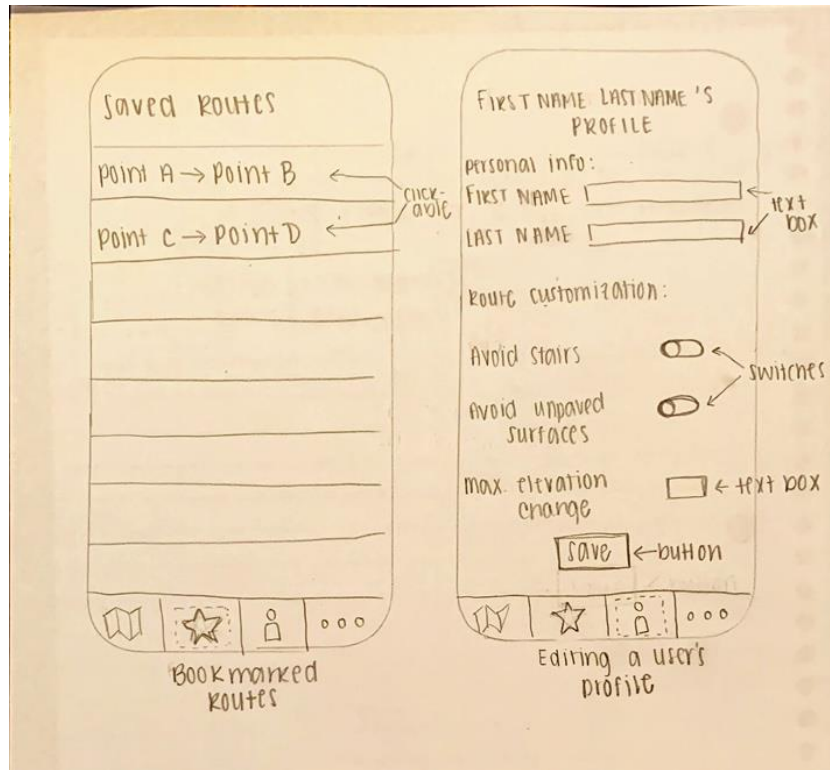 Saved Routes
Point A → Point B
Point C → Point D
click-
able
Bookmarked
Routes
FIRST NAME LAST NAME'S
PROFILE
personal info:
FIRST NAME
LAST NAME
text
box
Route customization:
Avoid stairs
switches
Avoid unpaved
surfaces
max. elevation
change
text box
save
button
Editing a user's
profile